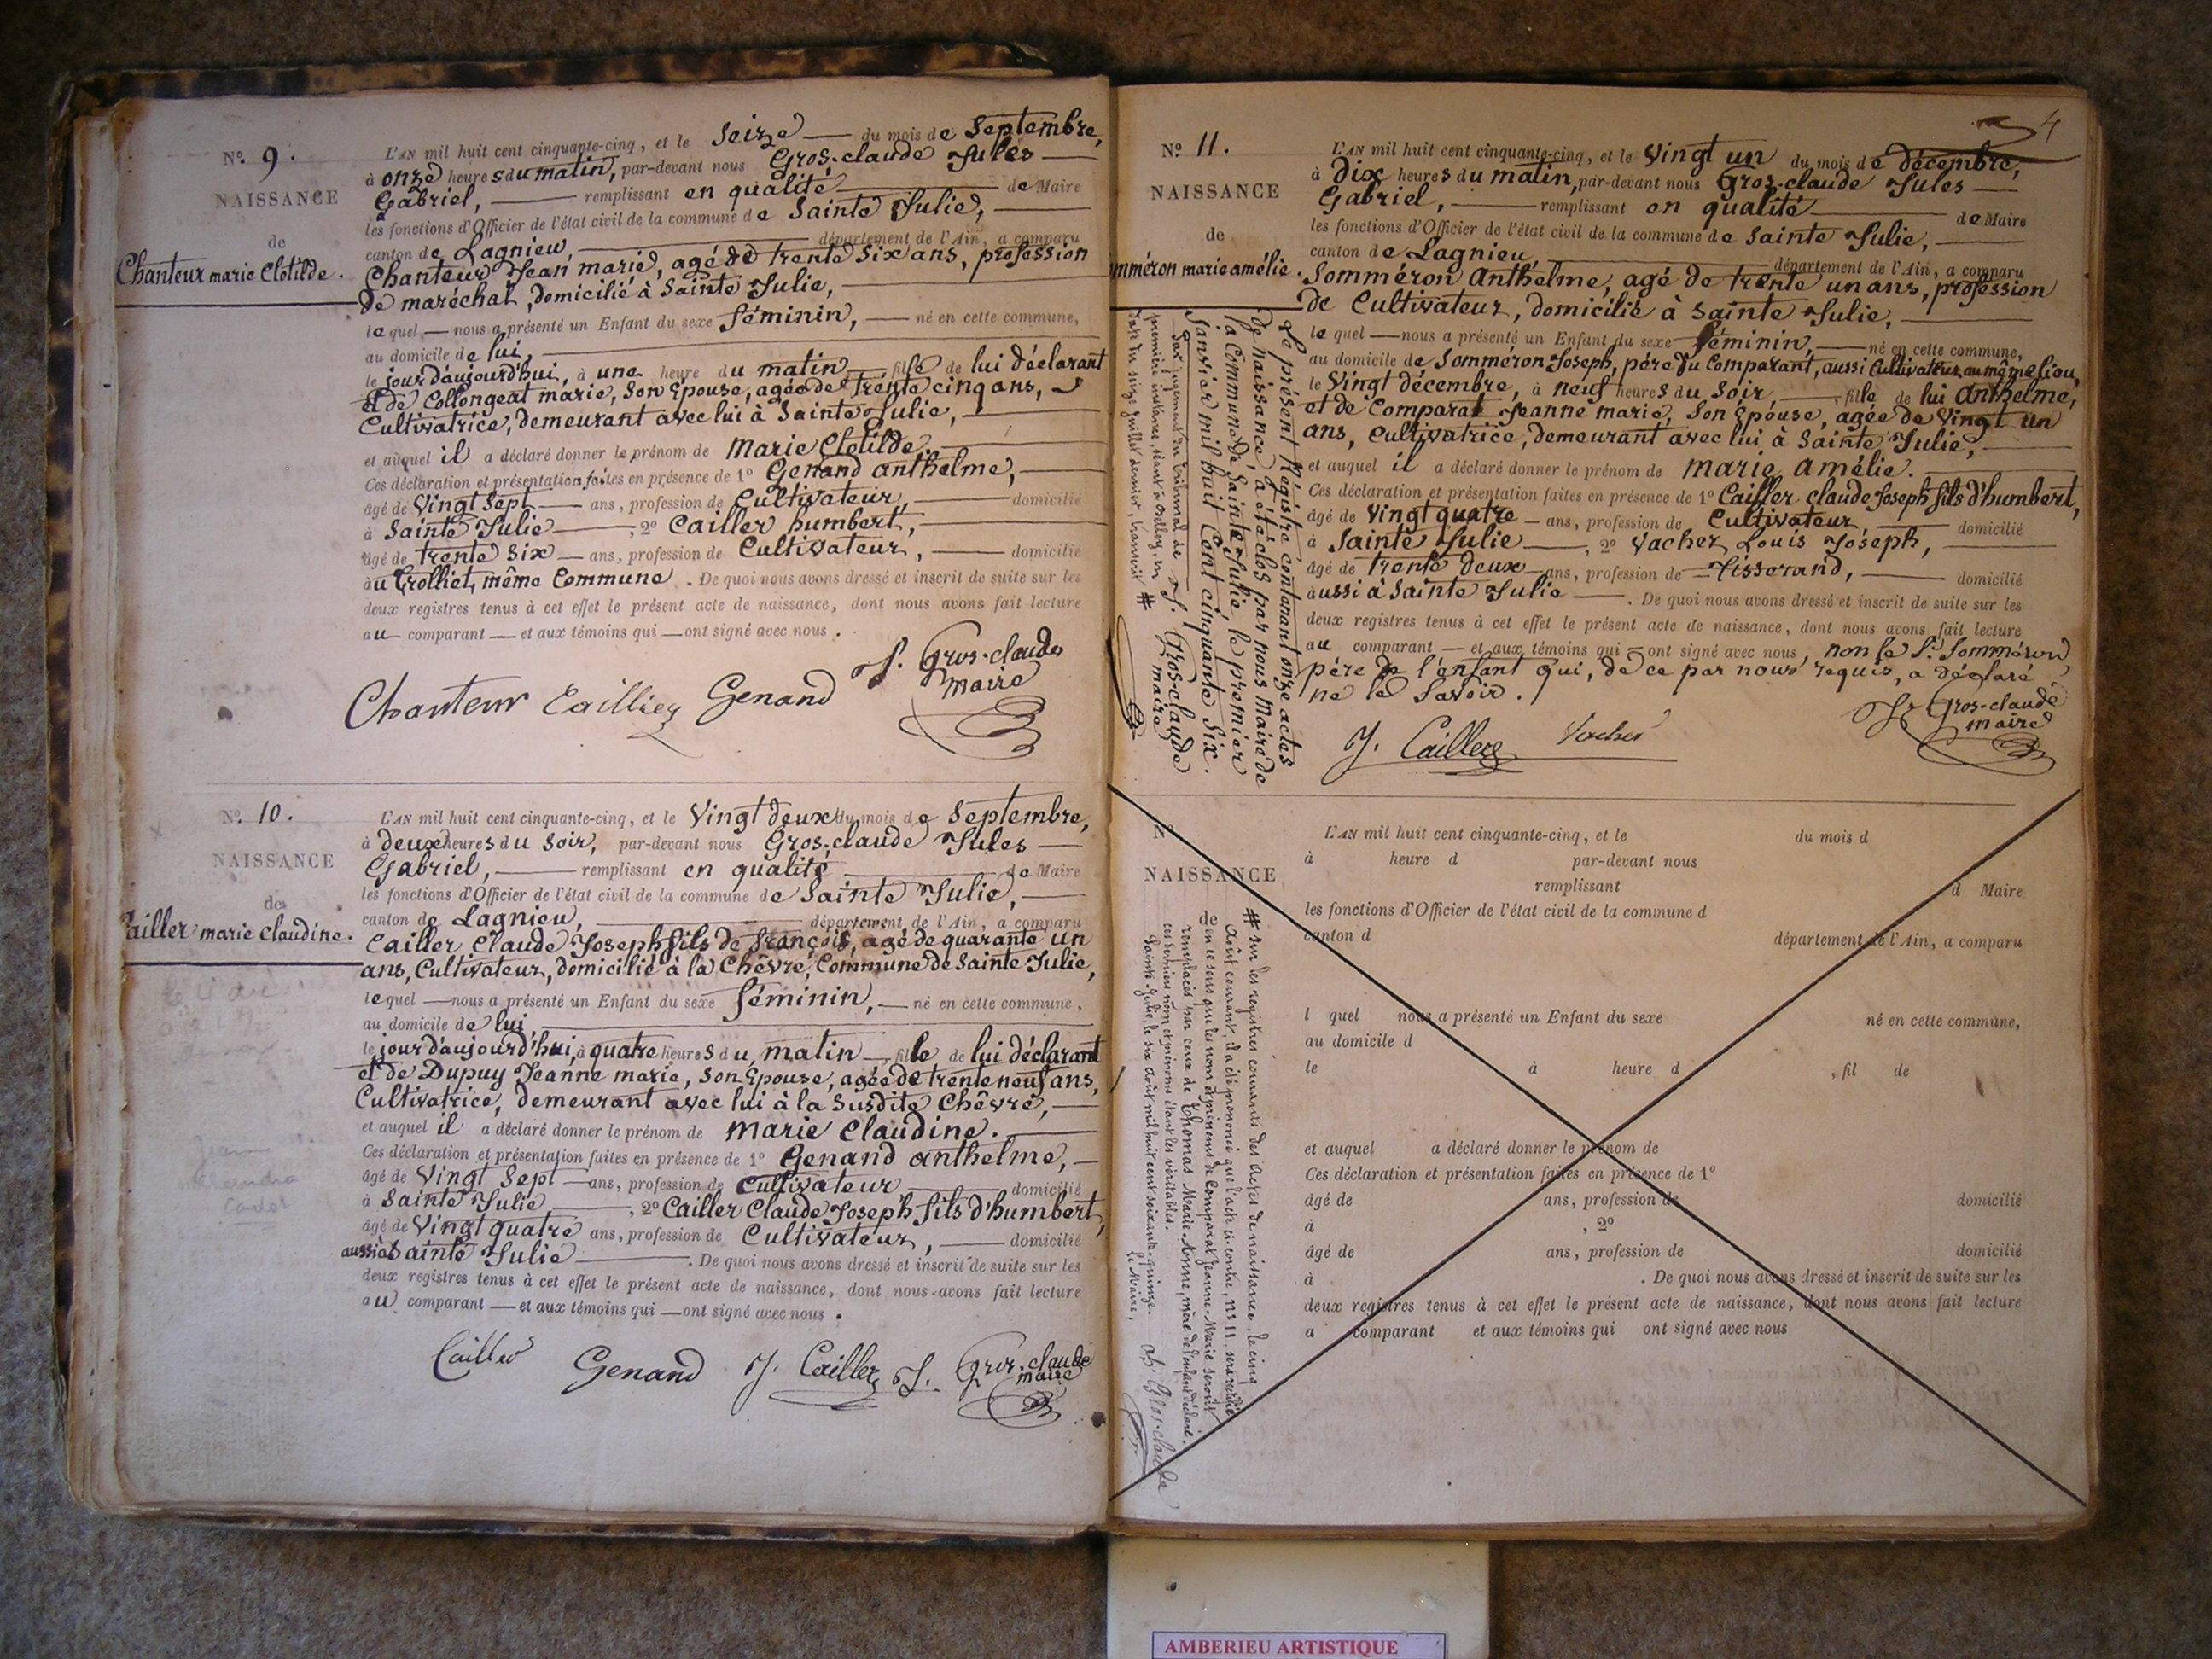 N.º 9.
NAISSANCE
de
Chanteur marie Clotilde.
L'AN mil huit cent cinquante-cinq, et le Seize du mois de Septembre,
à onze heures du matin, par-devant nous Gros-claude Jules
Gabriel, remplissant en qualité de Maire
les fonctions d'Officier de l'état civil de la commune de Sainte Julie,
canton de Lagnieu, département de l'Ain, a comparu
Chanteur Jean marie, agé de trente Six ans, profession
de maréchal, domicilié à Sainte Julie,
lequel nous a présenté un Enfant du sexe féminin, né en cette commune,
au domicile de lui,
le jour d'aujourd'hui, à une heure du matin, fille de lui déclarant
et de Collongeat marie, Son Epouse, agée de trente cinq ans,
Cultivatrice, demeurant avec lui à Sainte Julie,
et auquel il a déclaré donner le prénom de Marie Clotilde.
Ces déclaration et présentation faites en présence de 1º Genand anthelme,
âgé de Vingt Sept ans, profession de Cultivateur, domicilié
à Sainte Julie, 2º Cailler humbert,
âgé de trente Six ans, profession de Cultivateur, domicilié
au Trolliet, même Commune. De quoi nous avons dressé et inscrit de suite sur les
deux registres tenus à cet effet le présent acte de naissance, dont nous avons fait lecture
au comparant et aux témoins qui ont signé avec nous.
J. Gros-claude
maire
Chanteur Caillier Genand
N.º 10.
NAISSANCE
de
Cailler marie claudine.
L'AN mil huit cent cinquante-cinq, et le Vingt deux du mois de Septembre,
à deux heures du Soir, par-devant nous Gros-claude Jules
Gabriel, remplissant en qualité de Maire
les fonctions d'Officier de l'état civil de la commune de Sainte Julie,
canton de Lagnieu, département de l'Ain, a comparu
Cailler Claude Joseph fils de françois, agé de quarante un
ans, Cultivateur, domicilié à la Chêvre, Commune de Sainte Julie,
lequel nous a présenté un Enfant du sexe féminin, né en cette commune,
au domicile de lui,
le jour d'aujourd'hui, à quatre heures du matin, fille de lui déclarant
et de Dupuy Jeanne marie, Son Epouse, agée de trente neuf ans,
Cultivatrice, demeurant avec lui à la Susdite Chêvre,
et auquel il a déclaré donner le prénom de Marie Claudine.
Ces déclaration et présentation faites en présence de 1º Genand anthelme,
âgé de Vingt Sept ans, profession de Cultivateur domicilié
à Sainte Julie, 2º Cailler Claude Joseph fils d'humbert,
âgé de Vingt quatre ans, profession de Cultivateur, domicilié
aussi à Sainte Julie. De quoi nous avons dressé et inscrit de suite sur les
deux registres tenus à cet effet le présent acte de naissance, dont nous avons fait lecture
au comparant et aux témoins qui ont signé avec nous.
Cailler Genand J. Cailler J. Gros-claude
maire
4
N.º 11.
NAISSANCE
de
mméron marie amélie.
L'AN mil huit cent cinquante-cinq, et le Vingt un du mois de décembre,
à Dix heures du matin, par-devant nous Gros-claude Jules
Gabriel, remplissant en qualité de Maire
les fonctions d'Officier de l'état civil de la commune de Sainte Julie,
canton de Lagnieu, département de l'Ain, a comparu
Somméron Anthelme, agé de trente un ans, profession
de Cultivateur, domicilié à Sainte Julie,
lequel nous a présenté un Enfant du sexe féminin, né en cette commune,
au domicile de Somméron Joseph, père du Comparant, aussi Cultivateur au même lieu,
le Vingt décembre, à neuf heures du Soir, fille de lui Anthelme,
et de Comparat Jeanne marie, Son Epouse, agée de Vingt un
ans, Cultivatrice, demeurant avec lui à Sainte Julie,
et auquel il a déclaré donner le prénom de Marie Amélie.
Ces déclaration et présentation faites en présence de 1º Cailler claude Joseph fils d'humbert,
âgé de Vingt quatre ans, profession de Cultivateur, domicilié
à Sainte Julie, 2º Vacher Louis Joseph,
âgé de trente deux ans, profession de Tisserand, domicilié
aussi à Sainte Julie. De quoi nous avons dressé et inscrit de suite sur les
deux registres tenus à cet effet le présent acte de naissance, dont nous avons fait lecture
au comparant et aux témoins qui ont signé avec nous, non le S.r Somméron
père de l'enfant qui, de ce par nous requis, a déclaré
ne le Savoir.
J. Cailler Vacher J. Gros-claude
maire
Le présent Registre contenant onze actes
de naissance, a été clos par nous Maire de
la Commune de Sainte Julie, le premier
Janvier mil huit Cent cinquante Six.
J. Gros-claude
maire
Par jugement du tribunal de
première instance, séant à Belley, en
date du seize juillet dernier, transcrit #
# sur les registres courants des actes de naissance, le cinq
Août courant, il a été prononcé que l'acte ci-contre, nº 11, sera rectifié
en ce sens que les nom et prénoms de Comparat Jeanne-Marie seront
remplacés par ceux de Thomas Marie-Anne, mère de l'enfant déclaré,
ces derniers nom et prénoms étant les véritables.
Sainte-Julie, le six août mil huit cent soixante-quinze.
Le Maire,
Gros-claude
N
NAISSANCE
de
L'AN mil huit cent cinquante-cinq, et le du mois d
à heure d par-devant nous
remplissant d Maire
les fonctions d'Officier de l'état civil de la commune d
canton d département de l'Ain, a comparu
l quel nous a présenté un Enfant du sexe né en cette commune,
au domicile d
le à heure d , fil de
et auquel a déclaré donner le prénom de
Ces déclaration et présentation faites en présence de 1º
âgé de ans, profession de domicilié
à , 2º
âgé de ans, profession de domicilié
à . De quoi nous avons dressé et inscrit de suite sur les
deux registres tenus à cet effet le présent acte de naissance, dont nous avons fait lecture
a comparant et aux témoins qui ont signé avec nous
AMBERIEU ARTISTIQUE